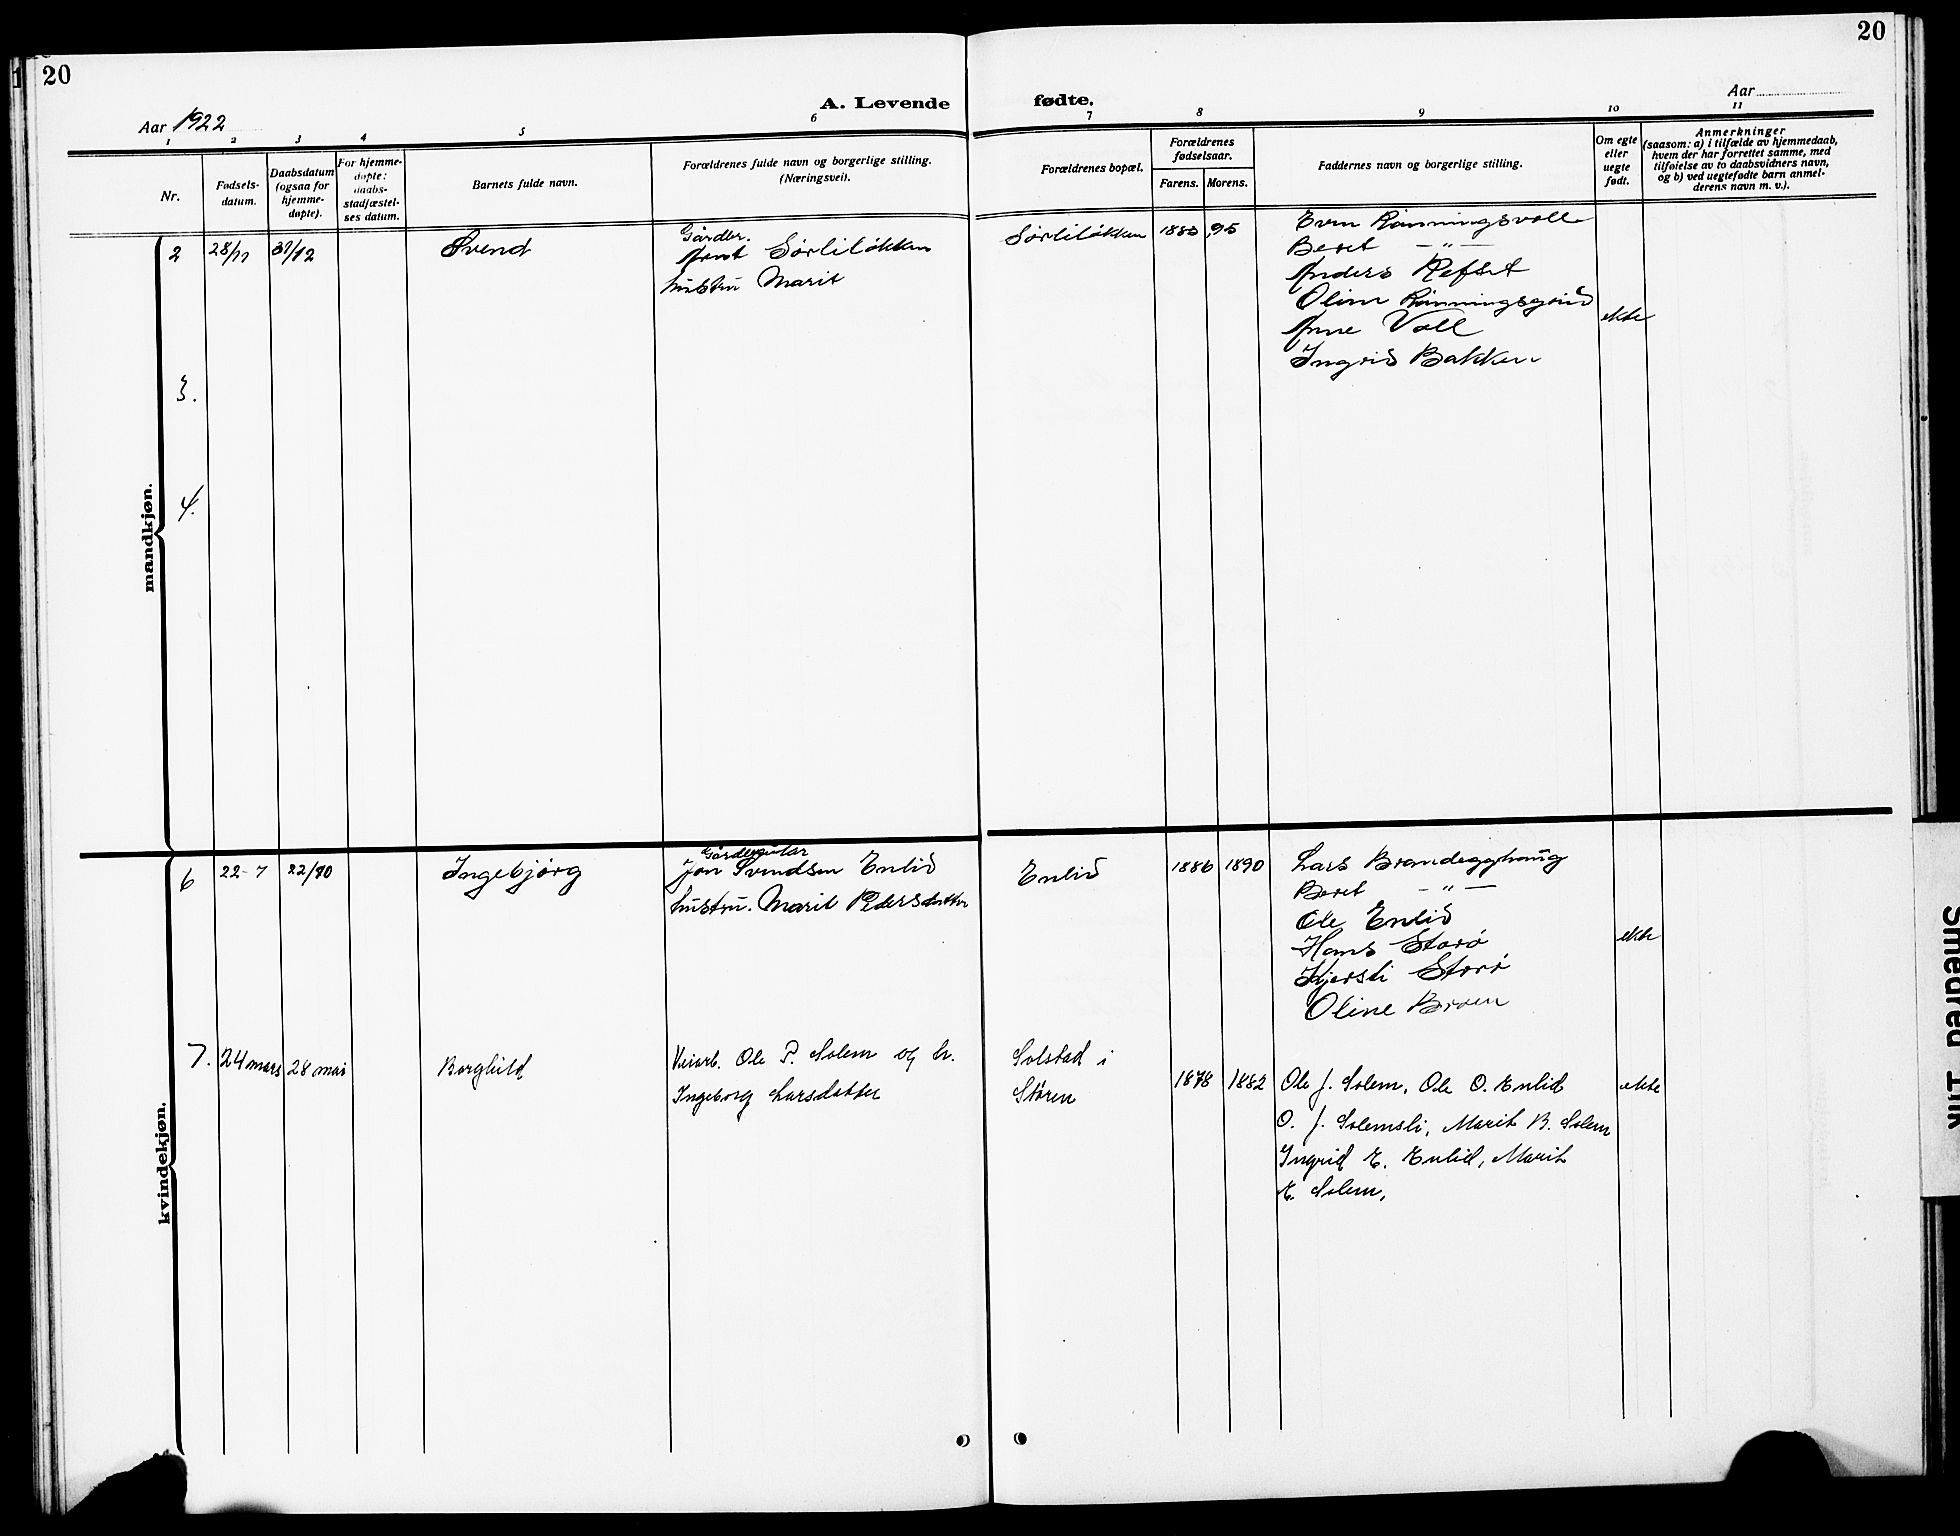 20
20
A. Levende fødte.
Aar 1922
Aar
1
2
3
4
5
6
7
8
9
10
11
Nr.
Fødsels-
datum.
Daabsdatum
(ogsaa for
hjemme-
døpte).
For hjemme-
døpte:
daabs-
stadfæstel-
ses datum.
Barnets fulde navn.
Forældrenes fulde navn og borgerlige stilling.
(Næringsvei).
Forældrenes bopæl.
Forældrenes
fødselsaar.
Farens. Morens.
Faddernes navn og borgerlige stilling.
Om egte
eller
uegte
født.
Anmerkninger
(saasom: a) i tilfælde av hjemmedaab,
hvem der har forrettet samme, med
tilføielse av to daabsvidners navn,
og b) ved uegtefødte barn anmel-
derens navn m. v.).
mandkjøn.
2
28/11
31/12
Svend
Gårdbr.
Arnt Sörlilökken
hustru Marit
Sörlilökken
1883
95
Even Rönningsvoll
Beret — " —
Anders Refset
Oline Rönningsgrind
Anne Voll
Ingrid Bakken
ekte
3.
4.
kvindekjøn.
6
22-7
22/10
Ingebjörg
Jon Svendsen Enlid
hustru. Marit Pedersdatter
Enlid
1886
1890
Lars Brandegghaug
Beret — " —
Ole Enlid
Hans Storö
Kjersti Storö
Oline Broen
ekte
7.
24 mars
28 mai
Borghild
Veiarb. Ole P. Solem og h.
Ingeborg Larsdatter
Solstad i
Støren
1878
1882
Ole J. Solem, Ole O. Enlid
O. J. Solemsli, Marit B. Solem
Ingrid E. Enlid, Marit
E. Solem,
ekte